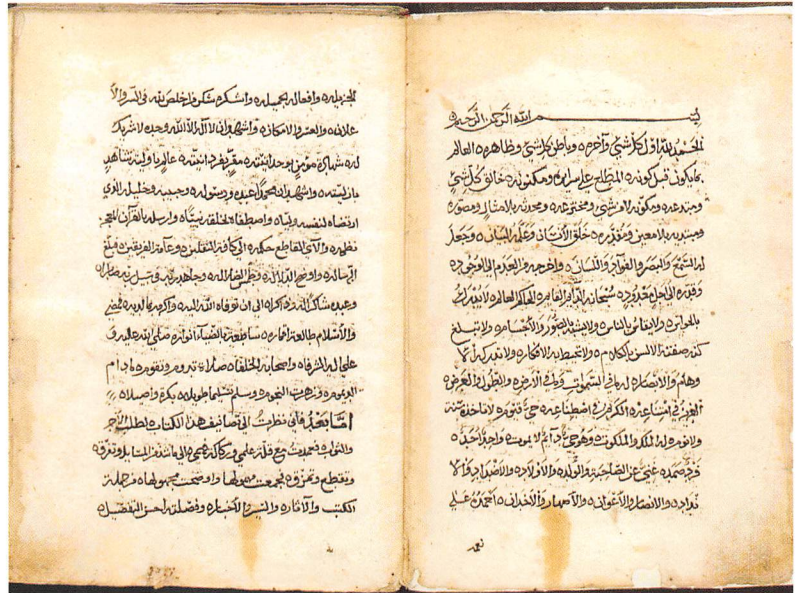 بسم الله الرحمن الرحيم
الحمد لله اول كل شيء وآخره وباطن كل شيء وظاهره العالم
بما يكون قبل كونه المطلع على سرائره ومكنونه خالق كل شيء
ومبتدعه ومكونه لا من شيء ومخترعه ومحدثه بلا مثال ومصوره
ومبتديه بلا معين ومقدره خلق الانسان وعلمه البيان وجعل
له السمع والبصر والفؤاد واللسان واخرجه من العدم الى وجوده
وقدره الى اجل معدوده سبحانه القادر القاهر الحاكم العالم لا يدرك
بالحواس ولا يقاس بالناس ولا يشبه بالصور والاجسام ولا تبلغ
كنه صفته الالسن بالكلام ولا تحيط به الافكار ولا تدركه الا
وهام والابصار له ما في السموات وما في الارض والطول والعرض
العزيز في امتناعه الكريم في اصطناعه حي قيوم لا تاخذه سنة
ولا نوم له الملك والملكوت وهو حي دائم لا يموت واحد احد
فرد صمد غني عن الصاحبة والولد والاولاد والاضداد والا
نداد والانصار والاعوان والاصهار والاخدان احمده على
نعمه
الجزيلة وافعاله الجميلة واشكره شكر من اخلص لله في السر والا
علان والعسر والامكان واشهد ان لا اله الا الله وحده لا شريك
له شهادة مؤمن بوحدانيته مقر بفردانيته عالم بازليته شاهد
بازليته واشهد ان محمدا عبده ورسوله وحبيبه وخليله الذي
ارتضاه لنفسه ونبيا واصطفاه لخلقه نبيا وارسله بالقرآن المعجز
نظمه والآي القاطع حكمه الى كافة الثقلين وعامة الفريقين فبلغ
الرسالة واوضح الدلالة وطمس الضلالة وجاهد في سبيل ربه صابرا
وعبده شاكرا ذاكرا الى ان توفاه الله اليه واكرمه بما لديه فمضى
والاسلام طالعة اقماره ساطعة بالضياء انواره صلى الله عليه و
على اله الشرفاء واصحابه الخلفاء صلاة تدوم وتنمو ما دام
وزهرت النجوم وسلم تسليما طويلا بكرة واصيلا
اما بعد فاني نظرت الى تصانيف هذا الكتاب لطلب الاجر
والثواب فعمدت مع قلة علمي وركاكة فهمي الى ما شذ من المسائل وتفرق
وتقطع وتمزق فجمعت مجملها واوضحت مجهولها من جملة
الكتب والآثار والسير والاخبار وفصلته احسن التفصيل